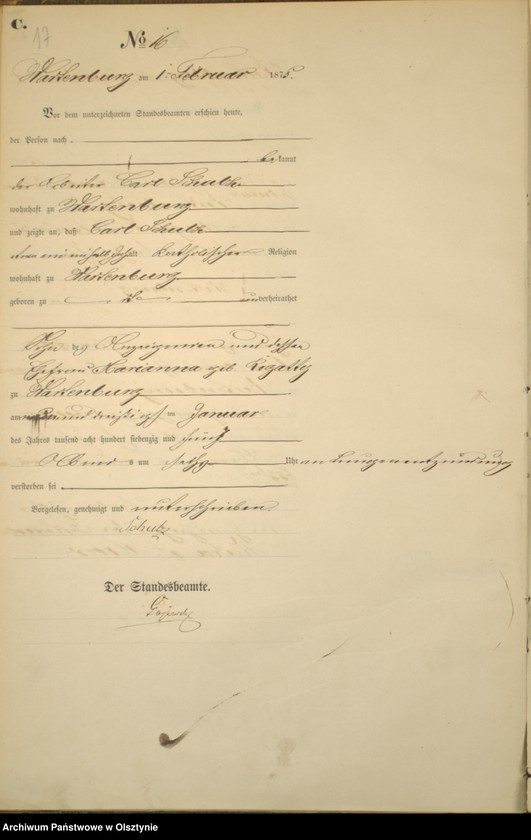 C.
17
No 16
Wartenburg am 1. Februar 1875.
Vor dem unterzeichneten Standesbeamten erschien heute,
der Person nach
bekannt
der Arbeiter Carl Schulz
wohnhaft zu Wartenburg
und zeigte an, daß Carl Schulz
Jahr katholischer Religion
wohnhaft zu Wartenburg
geboren zu unverheirathet
Sohn des Anzeigenden und dessen
Ehefrau Marianna geb.
zu Wartenburg
am ein und dreißigsten Januar
des Jahres tausend acht hundert siebenzig und fünf
Abends um sechs Uhr an Lungenentzündung
verstorben sei
Vorgelesen, genehmigt und unterschrieben
Schulz
Der Standesbeamte.
Archiwum Państwowe w Olsztynie